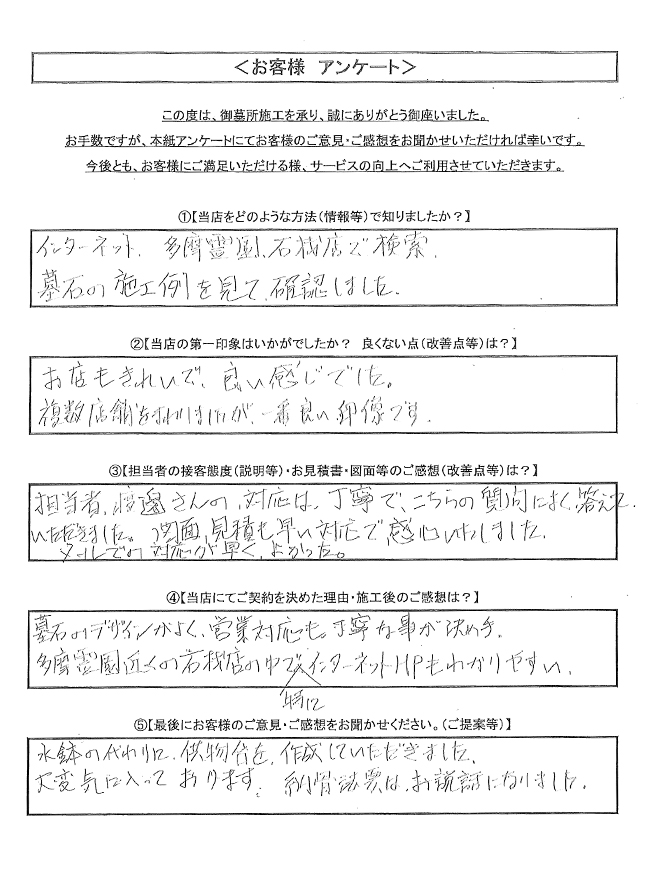 ＜お客様　アンケート＞
この度は、御墓所施工を承り、誠にありがとう御座いました。
お手数ですが、本紙アンケートにてお客様のご意見・ご感想をお聞かせいただければ幸いです。
今後とも、お客様にご満足いただける様、サービスの向上へご利用させていただきます。
①【当店をどのような方法（情報等）で知りましたか？】
インターネット、多摩霊園、石材店で検索、
墓石の施工例を見て、確認しました。
②【当店の第一印象はいかがでしたか？　良くない点（改善点等）は？】
お店もきれいで、良い感じでした。
複数店舗をまわりましたが、一番良い印像です。
③【担当者の接客態度（説明等）・お見積書・図面等のご感想（改善点等）は？】
担当者、渡邊さんの対応は、丁寧で、こちらの質問によく答えて
いただきました。図面、見積も早い対応で感心いたしました。
メールでの対応が早く、よかった。
④【当店にてご契約を決めた理由・施工後のご感想は？】
墓石のデザインがよく、営業対応も丁寧な事が決め手。
多摩霊園近くの石材店の中で、インターネットHPもわかりやすい。
特に
⑤【最後にお客様のご意見・ご感想をお聞かせください。（ご提案等）】
水鉢の代わりに、供物台を、作成していただきました。
大変気に入っております。納骨法要は、お世話になりました。